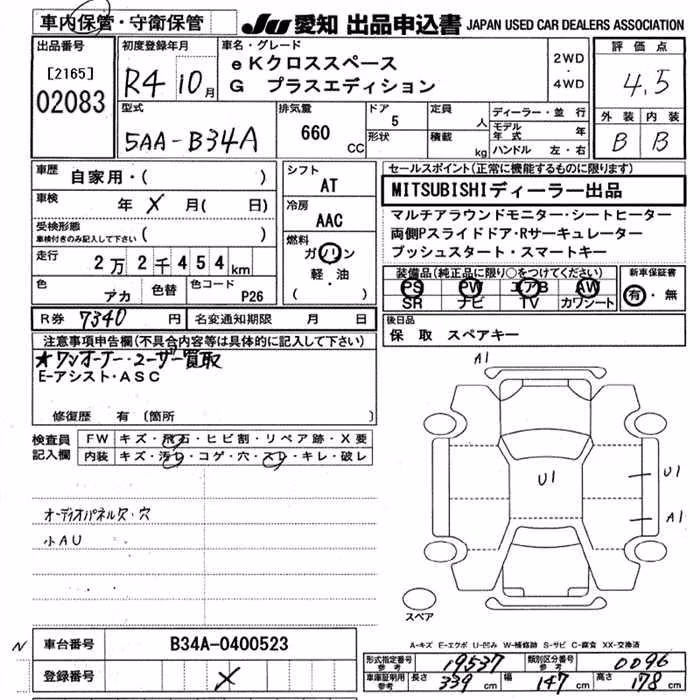 車内保管・守衛保管
JU 愛知 出品申込書 JAPAN USED CAR DEALERS ASSOCIATION
出品番号
[2165]
02083
初度登録年月
R4 10月
車名・グレード
eKクロススペース
G プラスエディション
2WD
・
4WD
評価点
4.5
外装 内装
B B
型式
5AA-B34A
排気量
660 CC
ドア
5
形状
定員
人
積載
kg
ディーラー・並行
モデル年式 年
ハンドル 左・右
車歴 自家用・( )
車検 年 X 月( 日)
受検形態
車検付きのみ記入して下さい ( )
走行 2万2千454km
色 アカ 色替 色コード P26
シフト
AT
冷房
AAC
燃料
ガソリン
・
軽・油
( )
セールスポイント(正常に機能するものに限ります)
MITSUBISHIディーラー出品
マルチアラウンドモニター・シートヒーター
両側Pスライドドア・Rサーキュレーター
プッシュスタート・スマートキー
装備品(純正品に限り○をつけてください)
PS PW エアB AW
SR ナビ TV カワシート
新車保証書
有・無
R券 7340 円 名変通知期限 月 日
後日品
保 取 スペアキー
注意事項申告欄(不具合内容等は具体的に記入して下さい)
★ワンオーナー・ユーザー買取
E-アシスト・ASC
修復歴 有 〔箇所 〕
検査員
記入欄
FW キズ・飛石・ヒビ割・リペア跡・X要
内装 キズ・汚レ・コゲ・穴・スレ・キレ・破レ
オーディオパネル欠・穴
小AU
A1
U1
U1
A1
スペア
A-キズ E-エクボ U-凹み W-補修跡 S-サビ C-腐食 XX-交換済
N 車台番号 B34A-0400523
登録番号 X
形式指定番号 参考 19537 類別区分番号 参考 0096
車庫証明用 参考 長さ 339 cm 幅 147 cm 高さ 178 cm